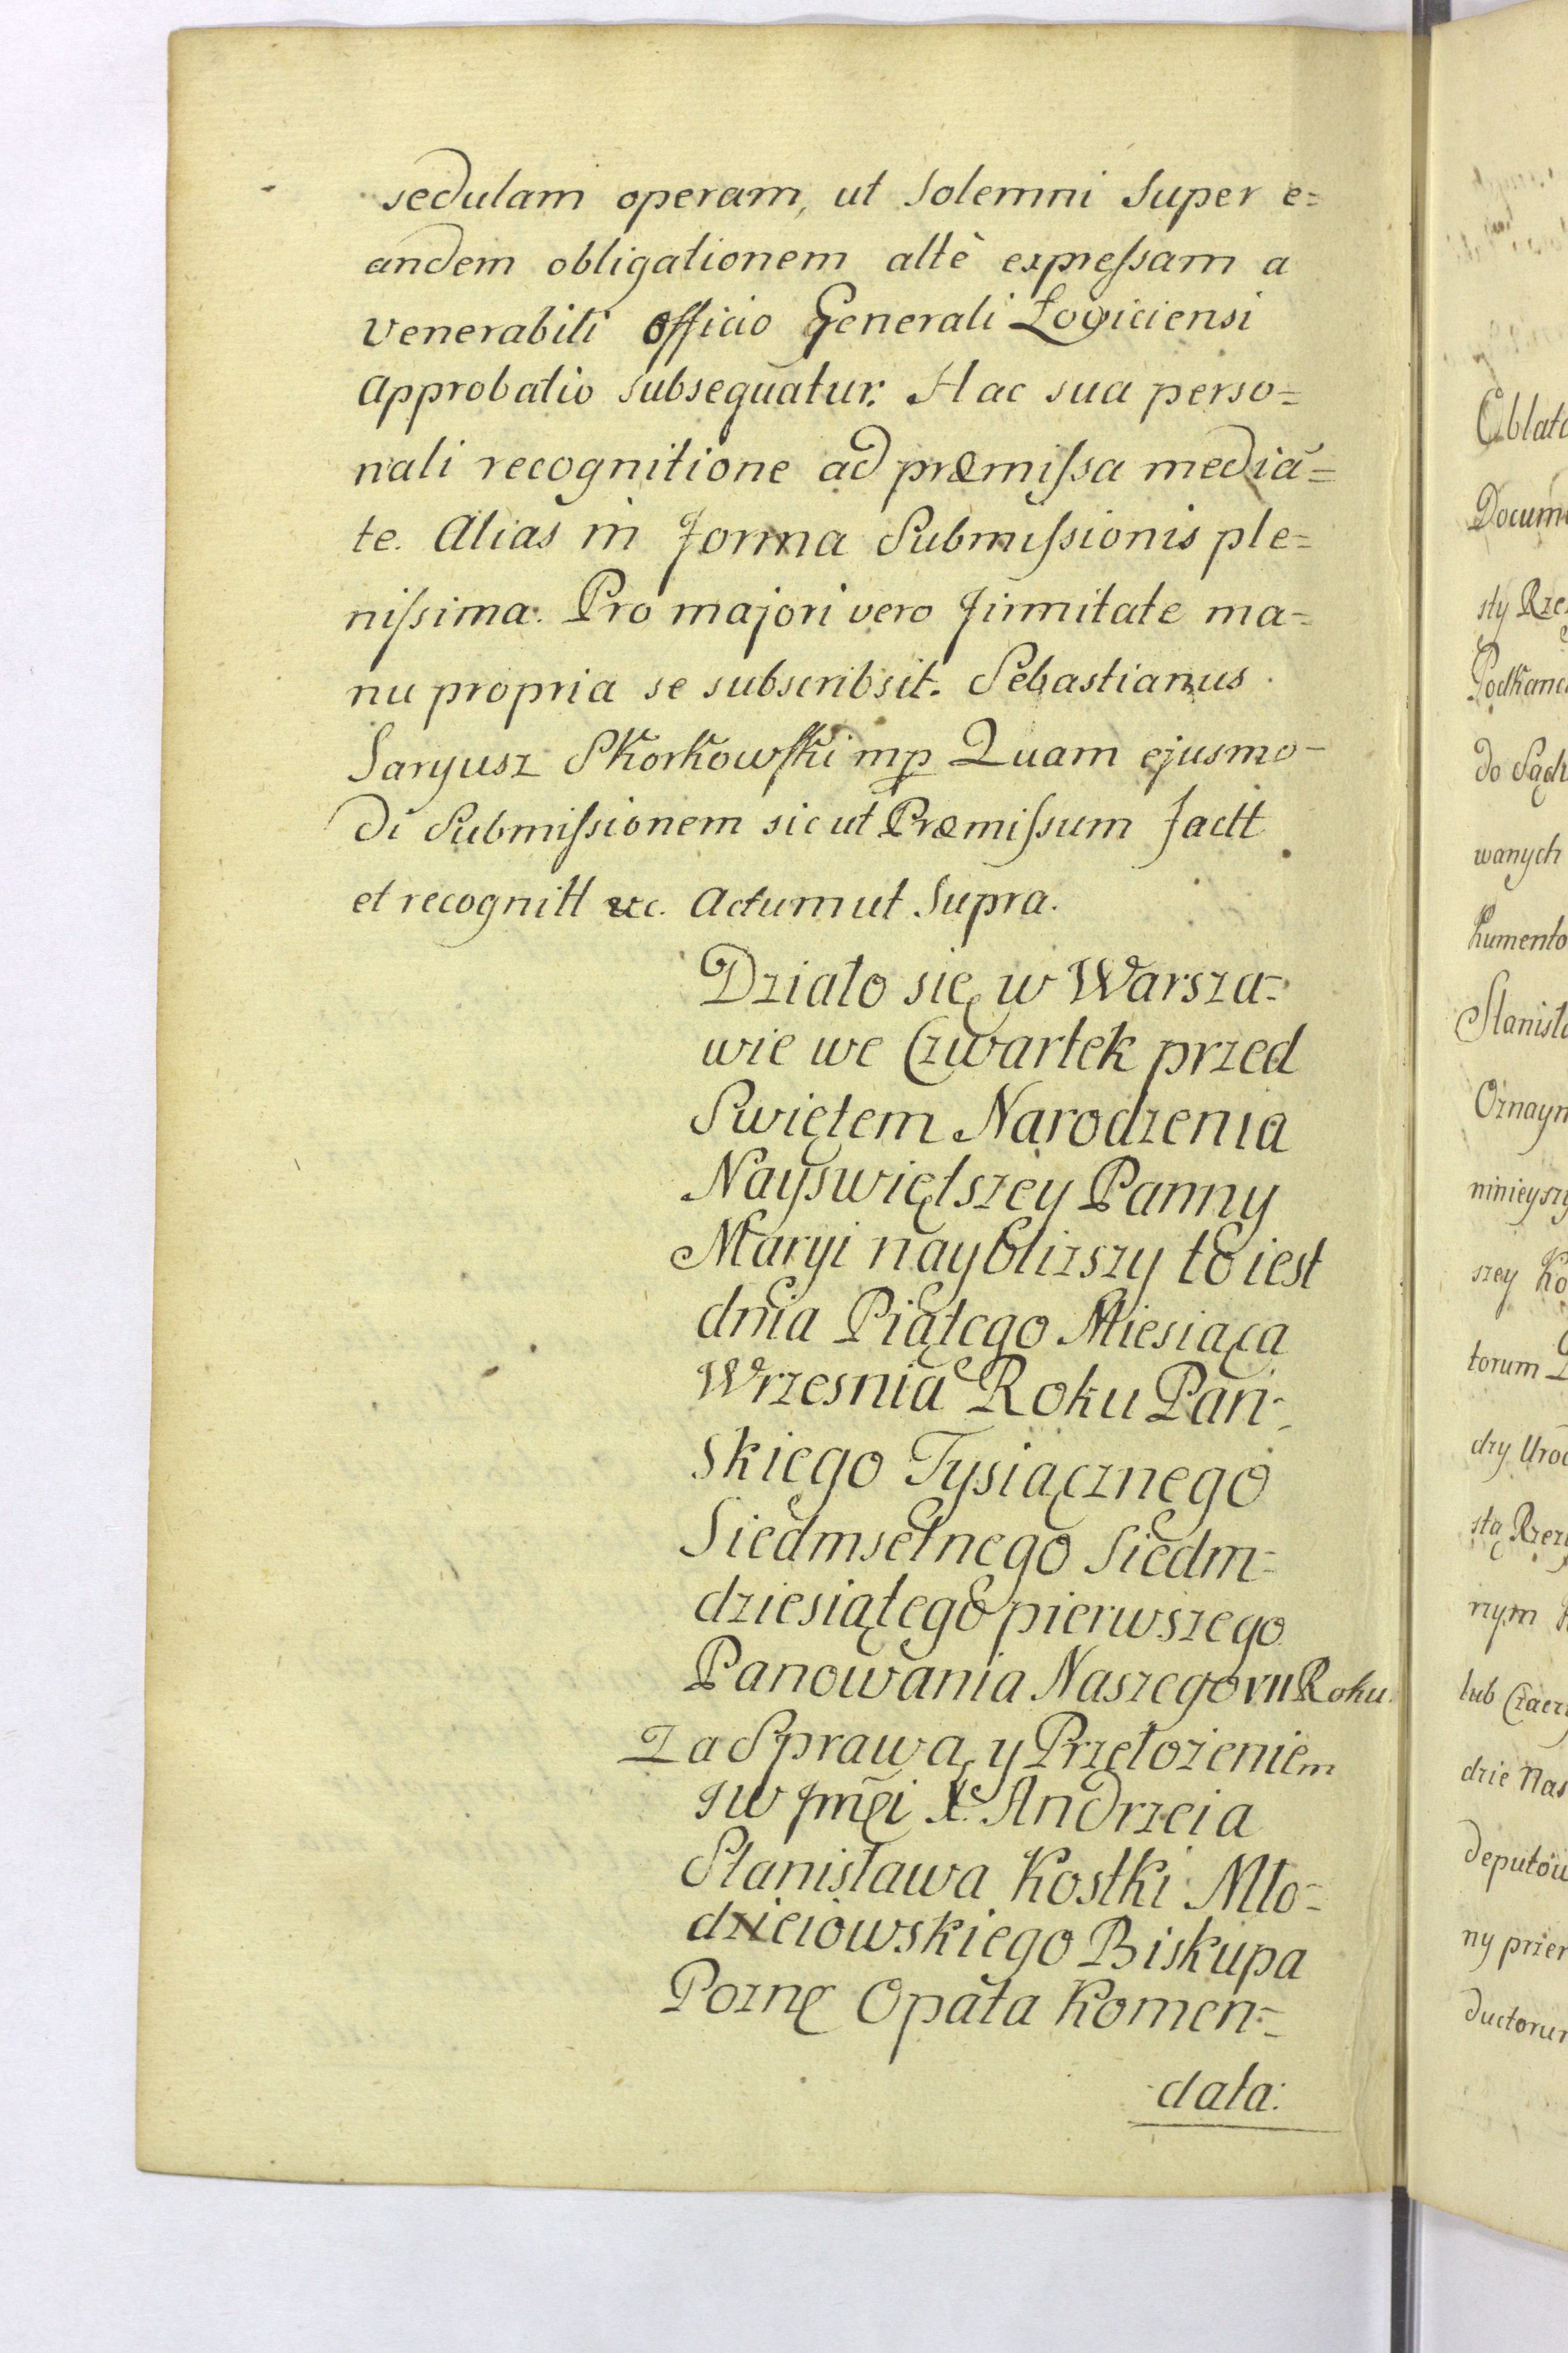 sedulam operam, ut Solemni Super e=
andem obligationem altè expreſsam a
Venerabili officio Generali Loviciensi
Approbatio Subsequatur. Hac sua perso=
nali recognitione ad præmiſsa media=
te. Alias in forma Submiſsionis ple=
niſsima. Pro majori vero firmitate ma=
nu propria se subscribsit. Sebastianus
Saryusz Skorkowſki mp Quam ejusmo-
di Submiſsionem sic ut Præmiſsum factt
et recognitt &c. Actum ut Supra.
Działo się w Warsza=
wie we Czwartek przed
Swiętem Narodzenia
Nayswiętszey Panny
Maryi naybliższy to iest
dnia Piątego Miesiąca
Wrzesnia Roku Pań=
skiego Tysiącznego
Siedmsetnego Siedm=
dziesiątego pierwszego
Panowania Naszego VII Roku.
Za Sprawą y Przełożeniem
JW Jmci X. Andrzeia
Stanisława Kostki Mło=
dzieiowskiego Biskupa
Pozng Opata Komen=
data:
Oblata
sty
do
wanych
ninieyszy
szey
torum
dry
stą
nym
lub
dzie Nas
ny